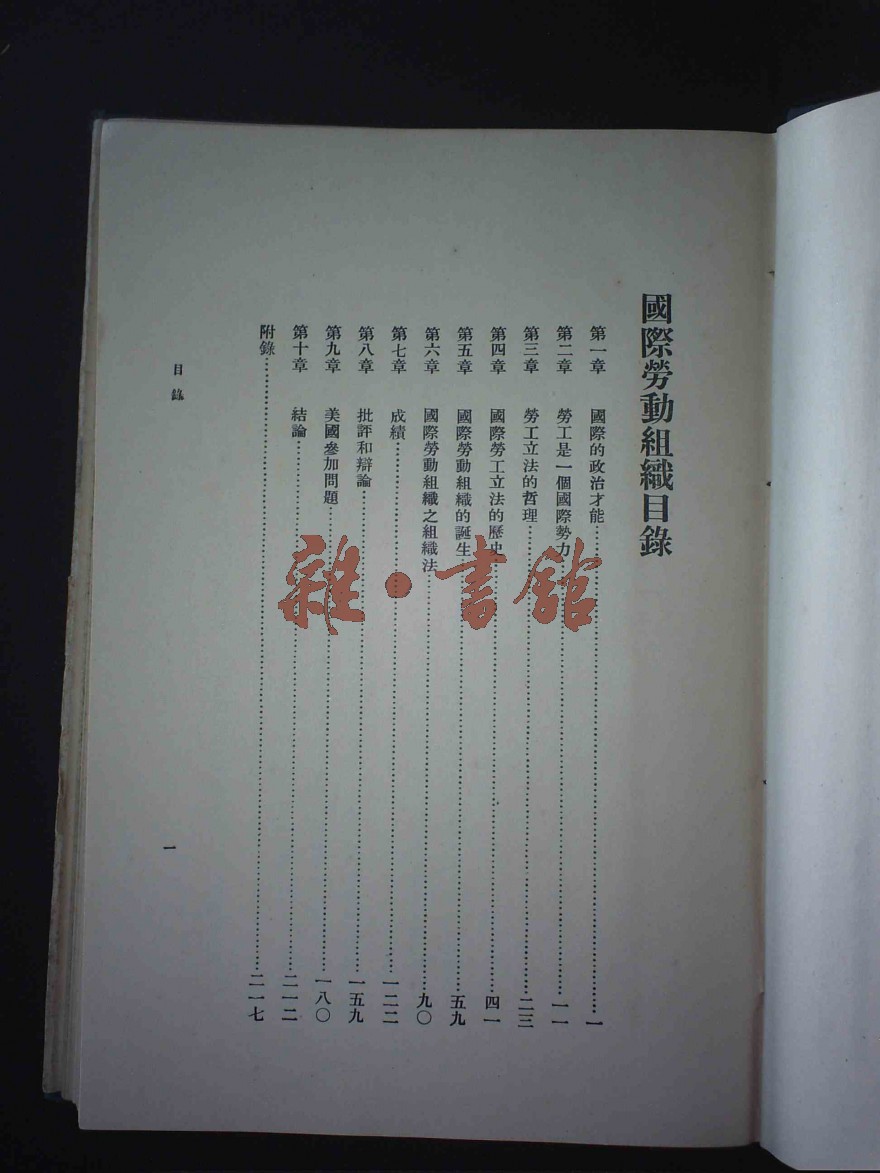 國際勞動組織目錄
第一章 國際的政治才能……一
第二章 勞工是一個國際勢力……一一
第三章 勞工立法的哲理……二三
第四章 國際勞工立法的歷史……四一
第五章 國際勞動組織的誕生……五九
第六章 國際勞動組織之組織法……九〇
第七章 成績……一二二
第八章 批評和辯論……一五九
第九章 美國參加問題……一八〇
第十章 結論……二一二
附錄……二一七
目錄
一
雜·書館